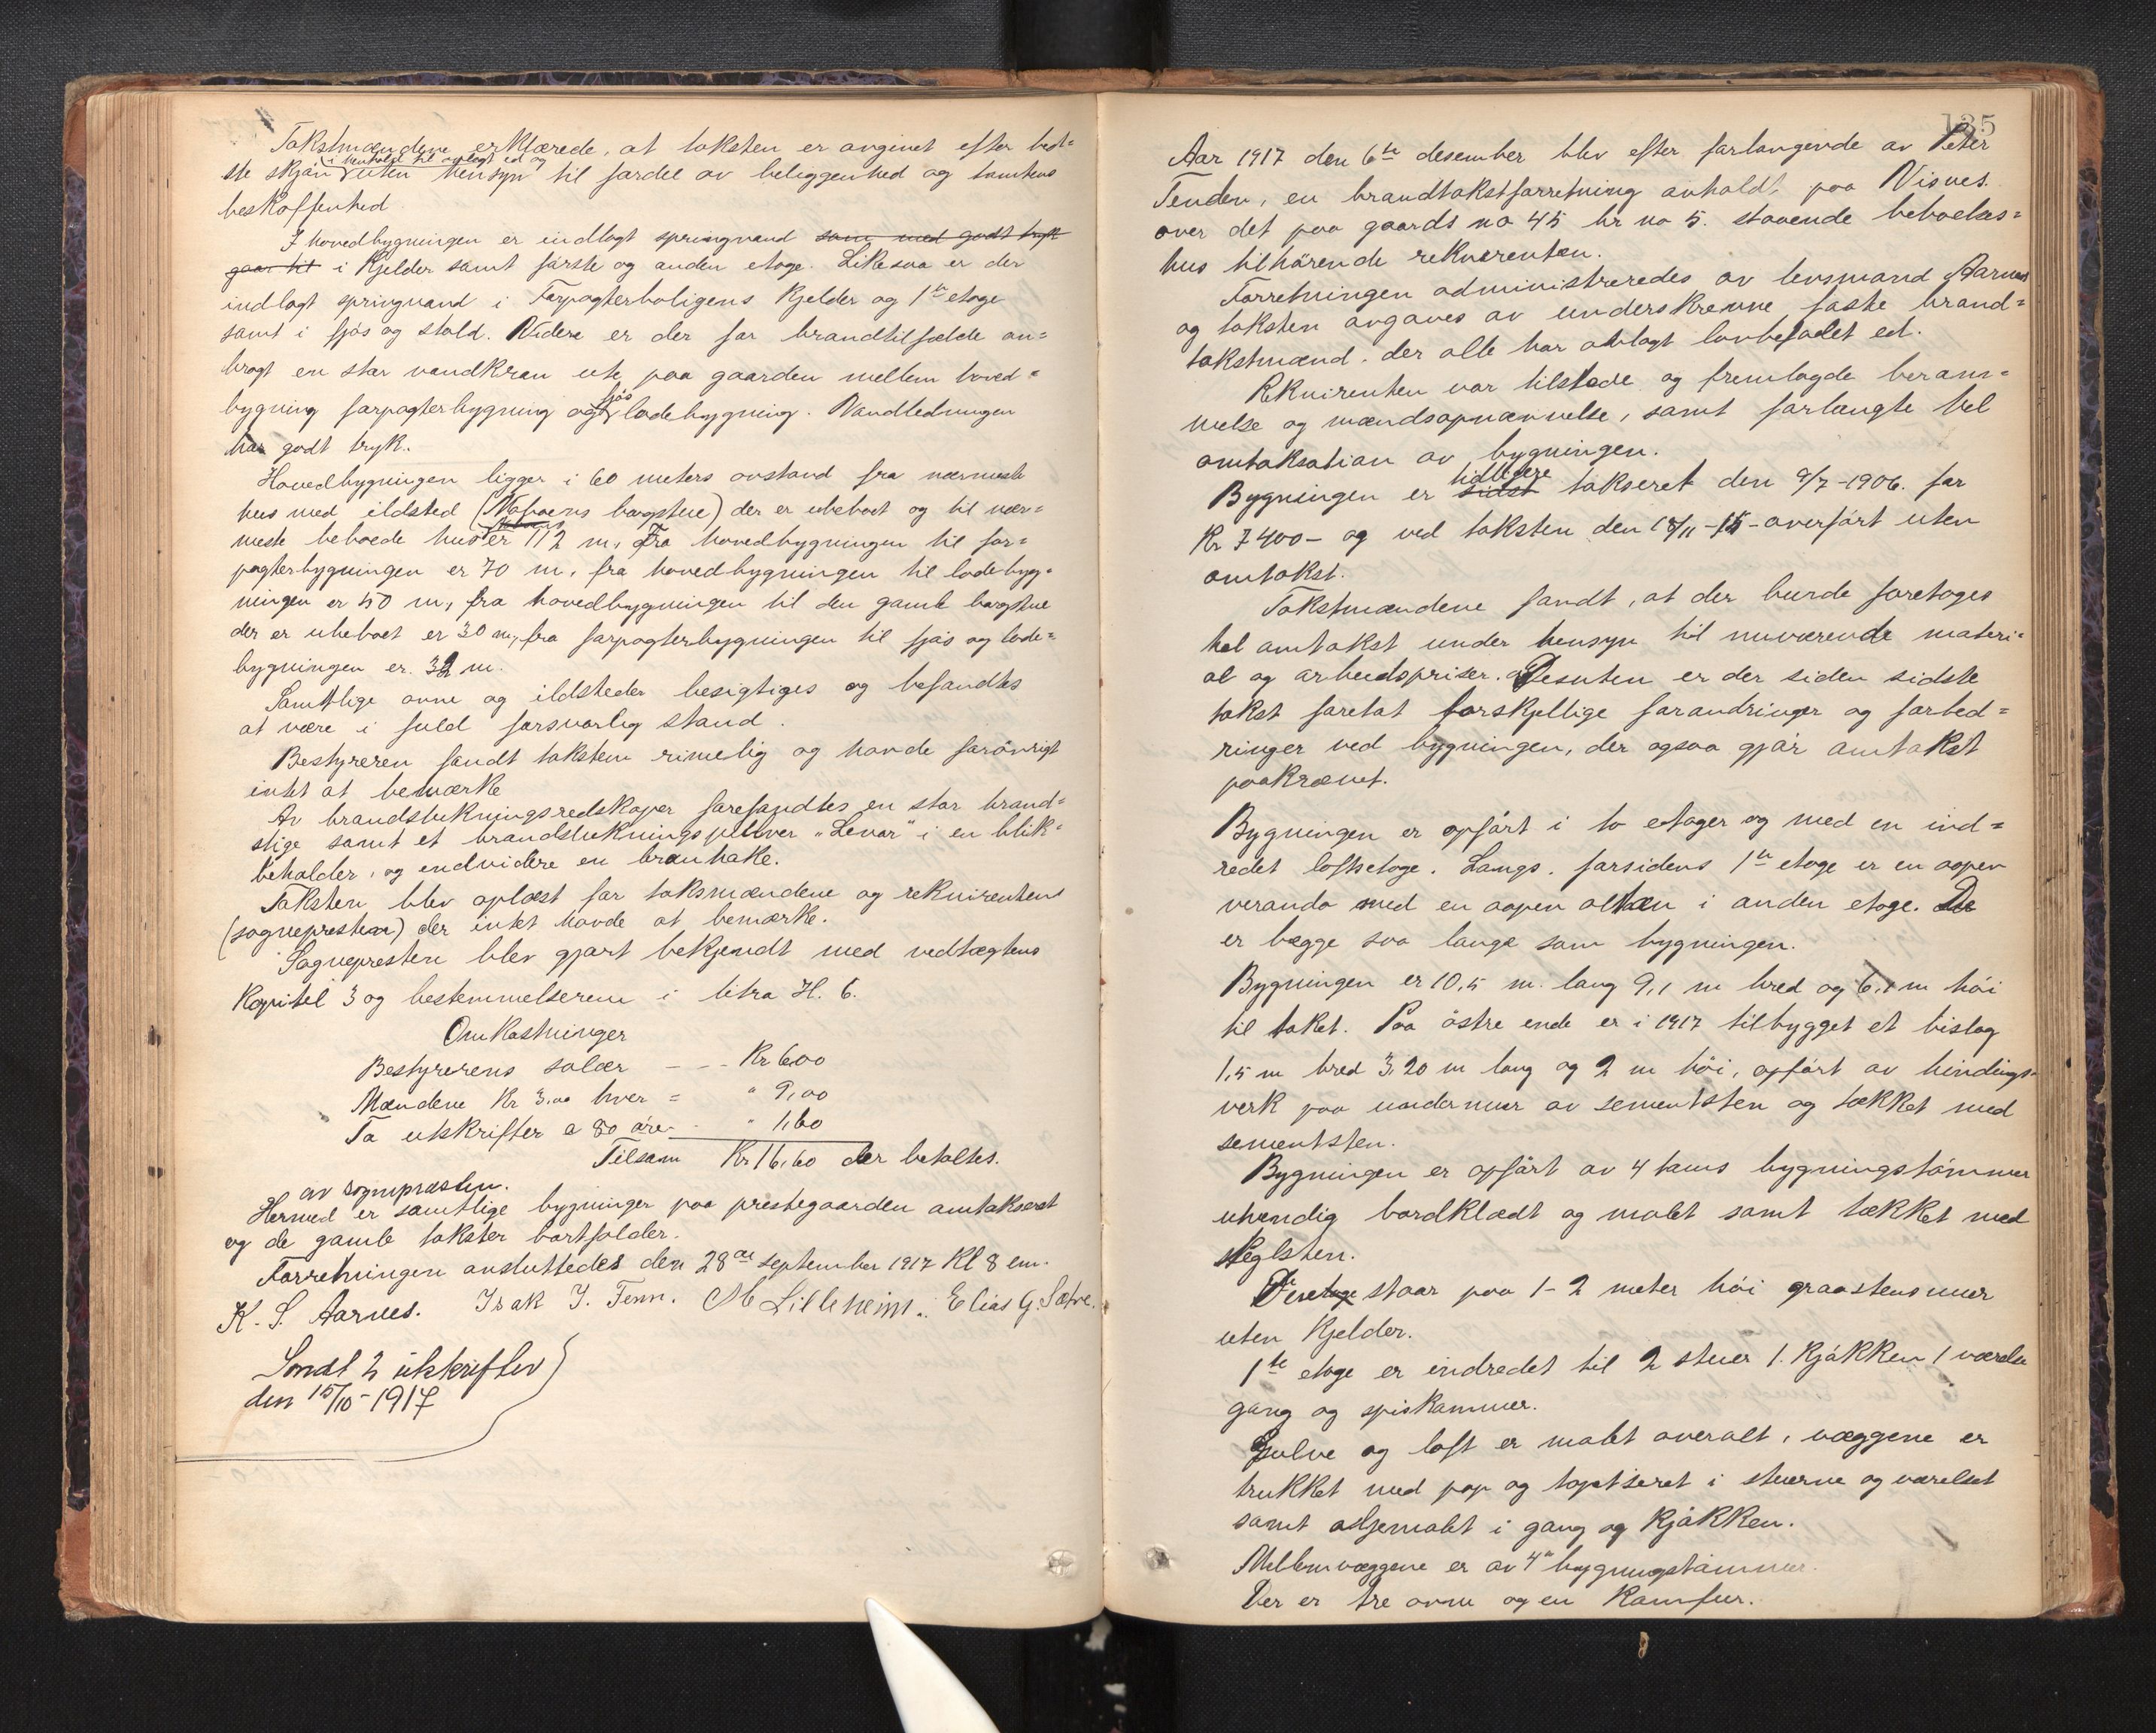 Takstmændene erklærede, at taksten er avgivet efter bed=
ste skjøn i henhold til avlagt ed og uten hensyn til fordel av beliggenhed og tomtens
beskaffenhed
I hovedbygningen er indlagt springvand som med godt tryk
gaar til i kjelder samt første og anden etage. Likesaa er der
indlagt springvand i Forpagterboligens kjelder og 1ste etage
samt i fjøs og stald. Videre er der for brandtilfælde an=
bragt en stor vandkran ute paa gaarden mellem hoved=
bygning forpagterbygning og fjøs ladebygning. Vandledningen
har godt tryk.
Hovedbygningen ligger i 60 meters avstand fra nærmeste
hus med ildsted (Naboens borgstue) der er ubeboet og til nær=
meste beboede hus er 112 m, Fra hovedbygningen til for=
pagterbygningen er 70 m, fra hovedbygningen til ladebyg=
ningen er 50 m, fra hovedbygningen til den gamle borgstue
der er ubeboet er 30 m, fra forpagterbygningen til fjøs og lade=
bygningen er 32 m.
Samtlige ovne og ildsteder besigtiges og befandtes
at være i fuld forsvarlig stand.
Bestyreren fandt taksten rimelig og havde forøvrigt
intet at bemærke
Av brandslukningsredskaper forefandtes en stor brand=
stige samt et brandslukningspulver „Levar" i en blik=
beholder, og endvidere en branhake.
Taksten blev oplæst for taksmændene og rekvirenten
(sognepresten) der intet havde at bemærke.
Sognepresten blev gjort bekjendt med vedtægtens
Kapitel 3 og bestemmelserne i litra H. 6.
Omkostninger
Bestyrerens salær - - - Kr 6.00
Mændene Kr 3.00 hver = " 9,00
To utskrifter a 80 øre - " 1,60
Tilsam Kr 16,60 der betaltes.
av sognpræsten.
Hermed er samtlige bygninger paa prestegaarden omtakseret
og de gamle takster bortfalder.
Forretningen avsluttedes den 28de september 1917 Kl 8 em.
K. S. Aarnes. Isak J. Fenn. M Lilleheim. Elias G. Sætre.
Sendt 2 utskrifter
den 15/10-1917
135
Aar 1917 den 6te desember blev efter forlangende av Peter
Tenden, en brandtakstforretning avholdt paa Visnes
over det paa gaards no 45 br no 5. staaende beboelses=
hus tilhørende rekvirenten.
Forretningen administreredes av lensmand Aarnes
og taksten avgaves av underskrevne faste brand=
takstmænd. der alle har avlagt lovbefalet ed.
Rekvirenten var tilstede og fremlagde beram=
melse og mændsopnævnelse, samt forlangte hel
omtaksation av bygningen.
Bygningen er sidst tidligere takseret den 9/7-1906. for
Kr 7400- og ved taksten den 18/11-15- overført uten
omtakst.
Takstmændene fandt, at der burde foretages
hel omtakst under hensyn til nuværende materi=
al og arbeidspriser. Desuten er der siden sidste
takst foretat forskjellige forandringer og forbed=
ringer ved bygningen, der ogsaa gjør omtakst
paakrævet.
Bygningen er opført i to etager og med en ind=
redet loftsetage. Langs. forsidens 1ste etage er en aapen
veranda med en aapen altan i anden etage. De
er bægge saa lange som bygningen.
Bygningen er 10,5 m. lang 9,1 m bred og 6,1 m høi
til taket. Paa østre ende er i 1917 tilbygget et bislag
1,5 m bred 3,20 m lang og 2 m høi, opført av bindings=
verk paa undermur av sementsten og tækket med
sementsten.
Bygningen er opført av 4 toms bygningstømmer
utvendig bordklædt og malet samt tækket med
teglsten.
staar paa 1-2 meter høi graastensmur
uten kjelder.
1ste etage er indredet til 2 stuer 1. kjøkken 1 værelse
gang og spiskammer.
Gulve og loft er malet overalt, væggene er
trukket med pap og tapetseret i stuerne og værelset
samt oljemalet i gang og kjøkken.
Mellemvæggene er av 4" bygningstømmer.
Der er tre ovne og en komfur.